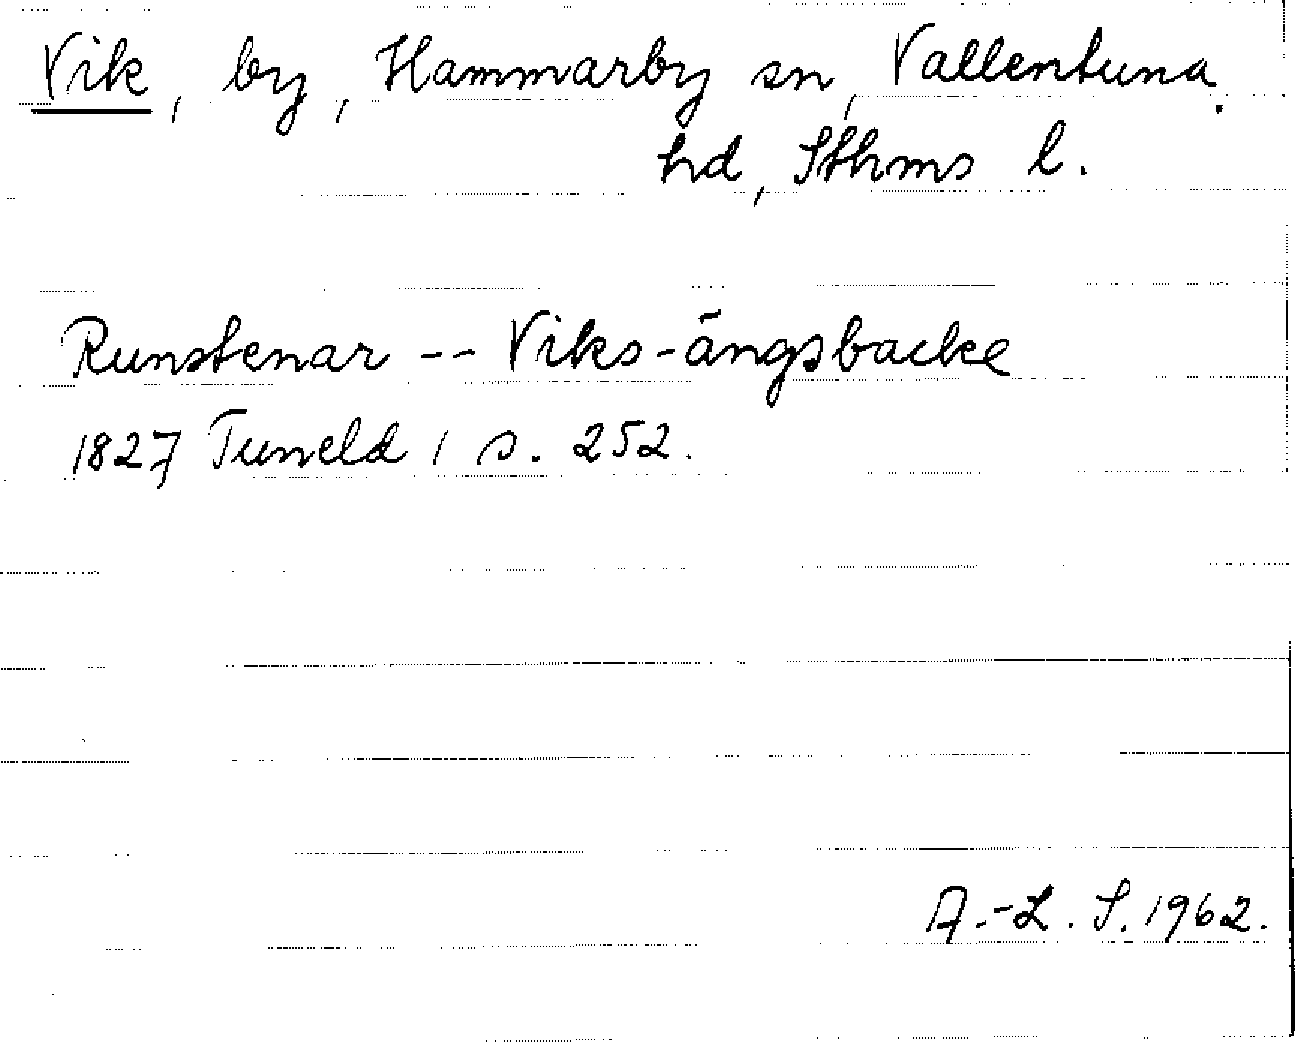 Vik, by, Hammarby sn, Vallentuna
hd, Sthms l.
Runstenar -- Viks-ängsbacke
1827 Tuneld 1 s. 252.
A.-L. S. 1962.